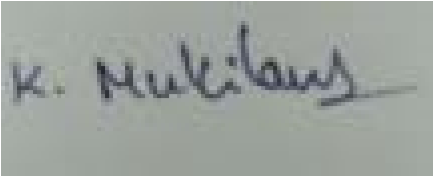 K. Mukilans